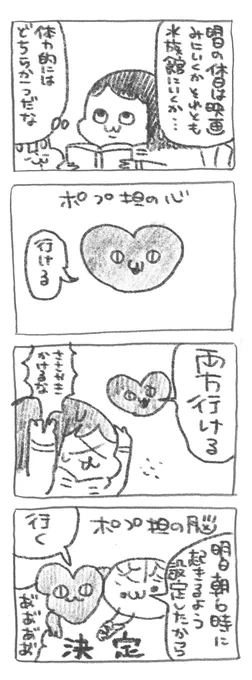 明日の休日は映画
みにいくかそれとも
水族館にいくか…
体力的には
どちらか一つだな
ポプ担の心
行ける
両方行ける
ささやき
かけるな
ポプ担の脳
明日朝6時に
起きるよう
設定したから
行く
あ゛あ゛あ゛あ゛
決定